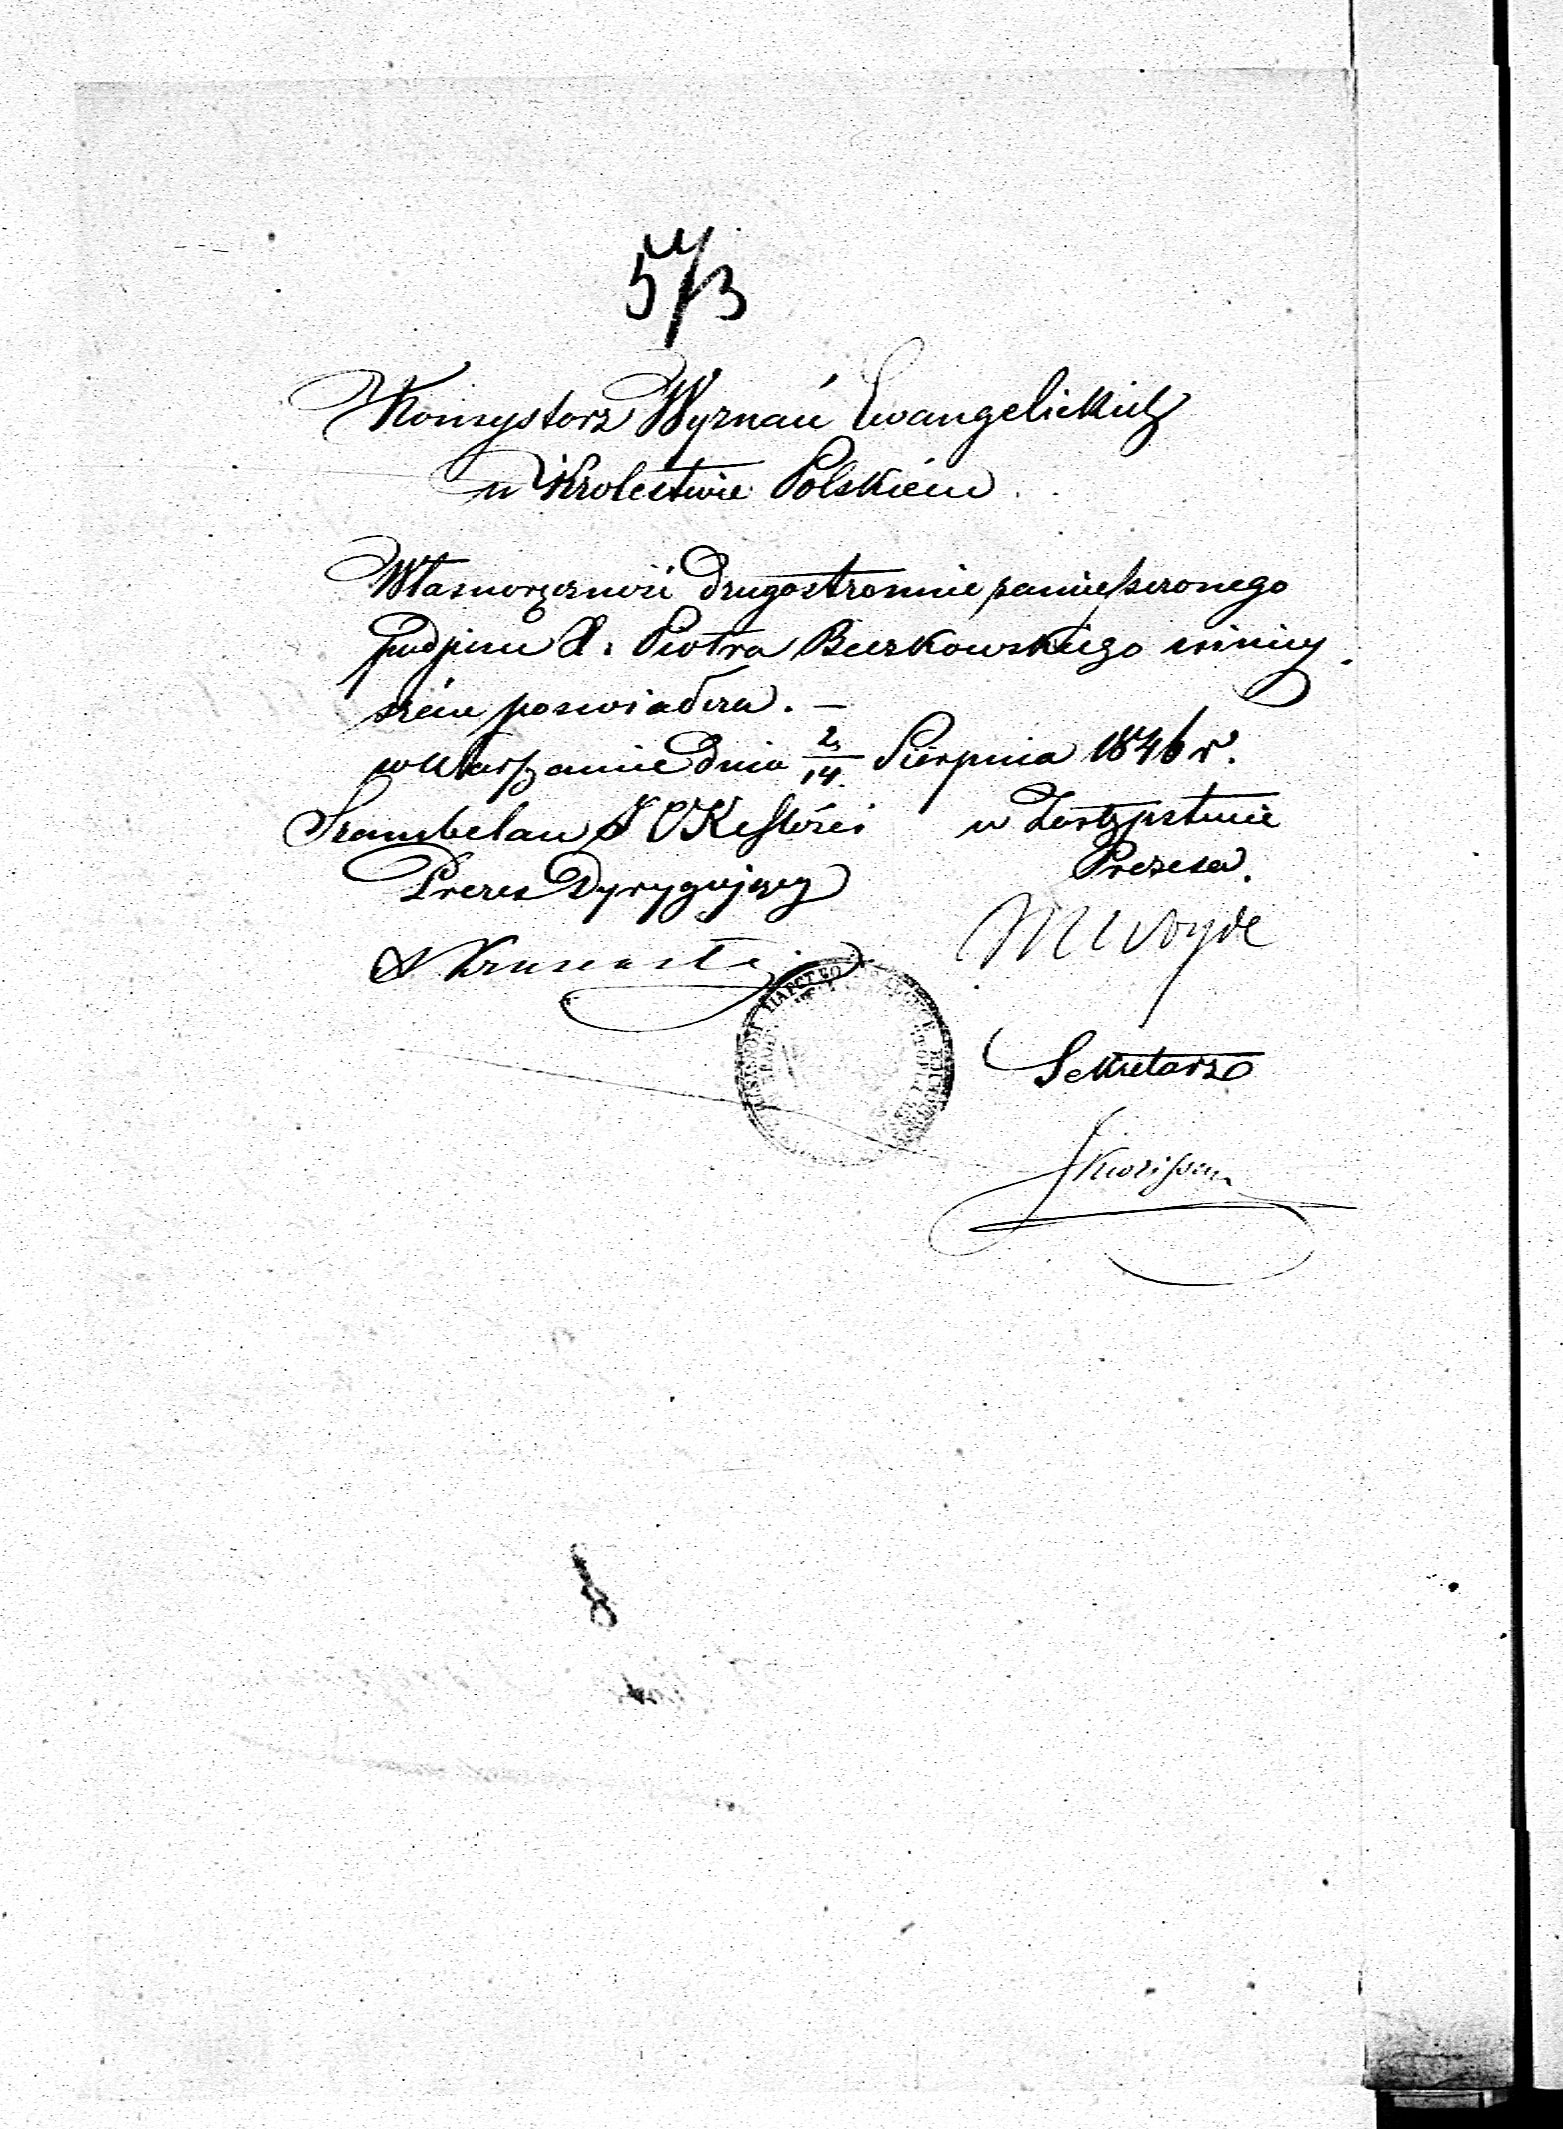 Konsystorz Wyznań Ewangelickich
w Krolestwie Polskiém
Własnoręczność drugostronnie zamieszczonego
podpisu X: Piotra Buszkowskiego niniey
szém poswiadcza. —
w Warszawie dnia 2/14 Sierpnia 1846 r.
Szambelan J C K Mości
w Zastępstwie
Prezes Dyrygujący
Prezesa.
Sekretarz